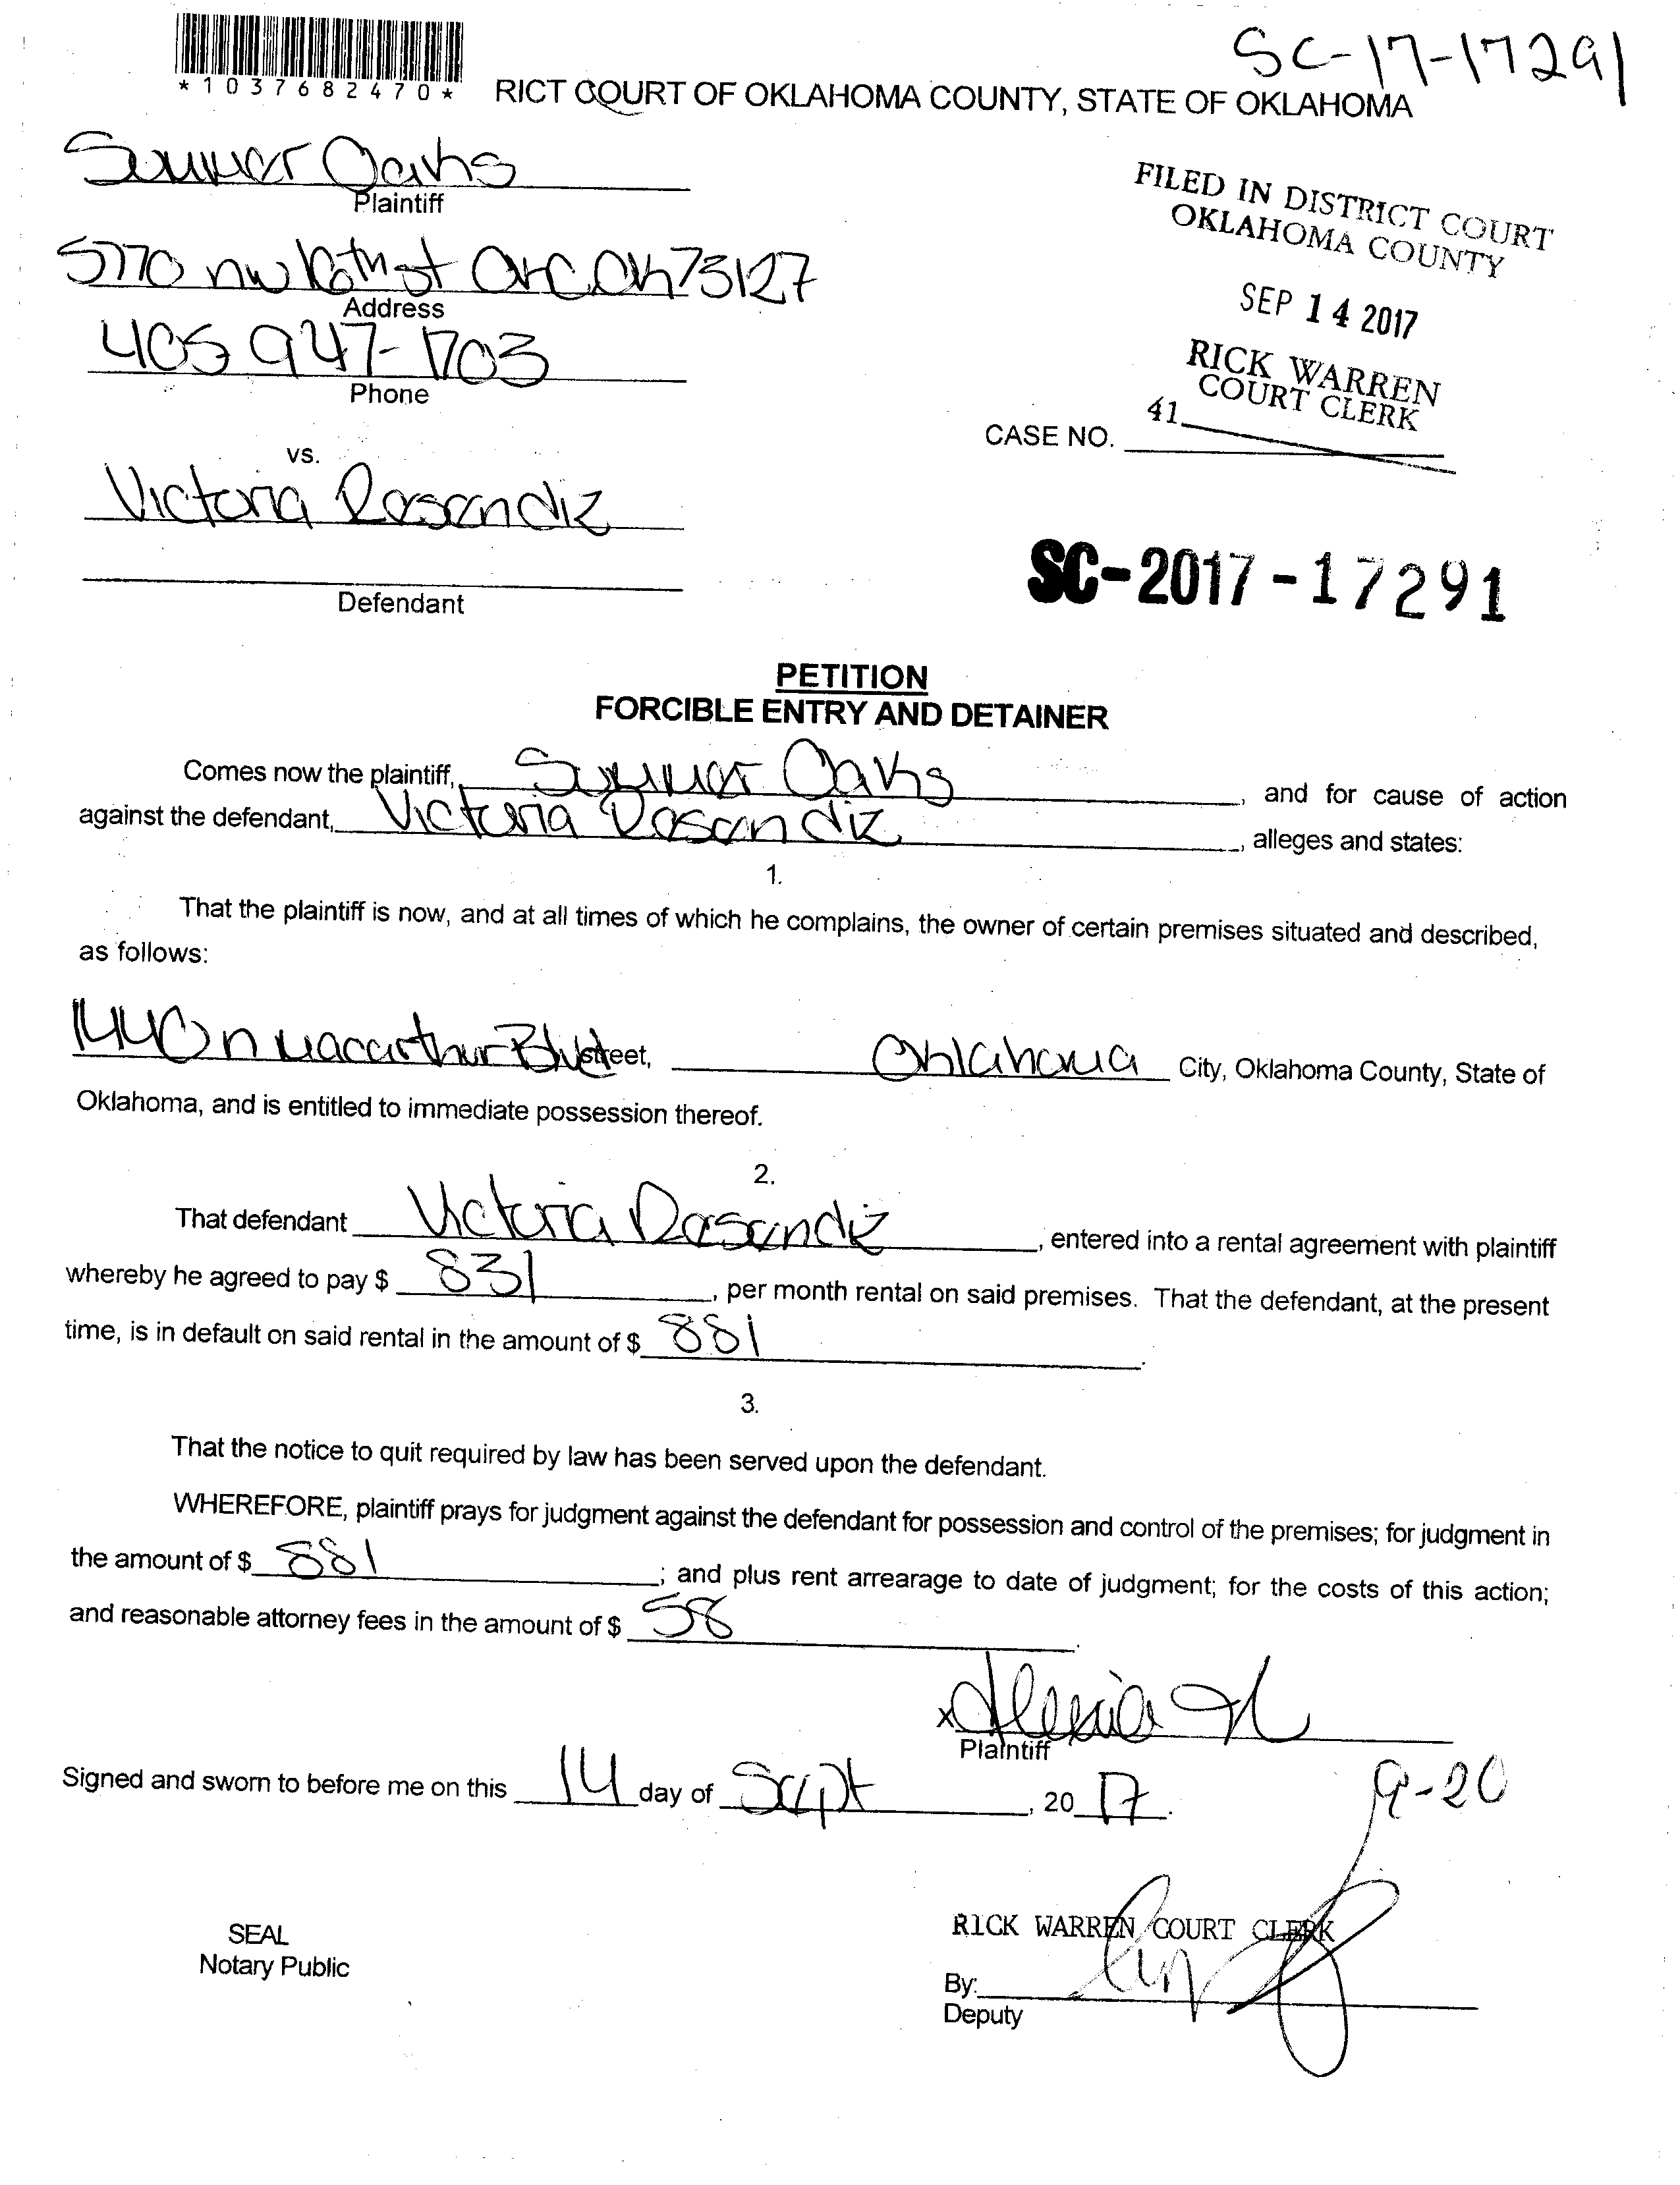 SC-17-17291
*1037682470*
RICT COURT OF OKLAHOMA COUNTY, STATE OF OKLAHOMA
Summer Oaks
Plaintiff
5770 nw 16th st OKC OK 73127
Address
405 947-1703
Phone
vs.
Victoria Rosendiz
Defendant
FILED IN DISTRICT COURT
OKLAHOMA COUNTY
SEP 14 2017
RICK WARREN
COURT CLERK
41
CASE NO.
SC-2017-17291
PETITION
FORCIBLE ENTRY AND DETAINER
Comes now the plaintiff, Summer Oaks, and for cause of action
against the defendant, Victoria Rosendiz, alleges and states:
1.
That the plaintiff is now, and at all times of which he complains, the owner of certain premises situated and described,
as follows:
1440 n macarthur Blvd street, Oklahoma City, Oklahoma County, State of
Oklahoma, and is entitled to immediate possession thereof.
2.
That defendant Victoria Rosendiz, entered into a rental agreement with plaintiff
whereby he agreed to pay $ 831, per month rental on said premises. That the defendant, at the present
time, is in default on said rental in the amount of $ 881.
3.
That the notice to quit required by law has been served upon the defendant.
WHEREFORE, plaintiff prays for judgment against the defendant for possession and control of the premises; for judgment in
the amount of $ 881; and plus rent arrearage to date of judgment; for the costs of this action;
and reasonable attorney fees in the amount of $ 58.
x
Plaintiff
Signed and sworn to before me on this 14 day of Sept, 20 17.
9-20
SEAL
Notary Public
RICK WARREN COURT CLERK
By:
Deputy